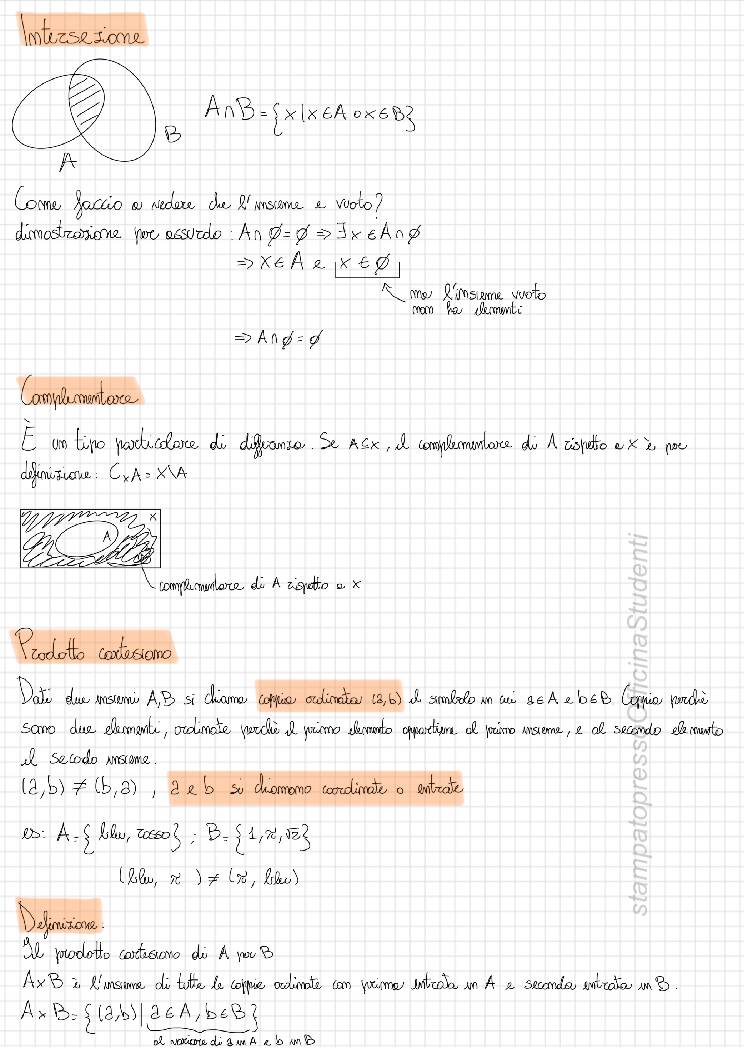 Intersezione
A∩B={x|x∈A o x∈B}
B
A
Come faccio a vedere che l'insieme e vuoto?
dimostrazione per assurdo: A∩∅=∅ ⇒ ∃x∈A∩∅
⇒ x∈A e x∈∅
ma l'insieme vuoto
non ha elementi
⇒ A∩∅=∅
Complementare
È un tipo particolare di differenza. Se A⊆X, il complementare di A rispetto a X è per
definizione: CₓA = X\A
X
A
complementare di A rispetto a X
Prodotto cartesiano
Dati due insiemi A,B si chiama coppia ordinata (a,b) il simbolo in cui a∈A e b∈B. Coppia perchè
sono due elementi, ordinate perchè il primo elemento appartiene al primo insieme, e al secondo elemento
il secodo insieme.
(a,b) ≠ (b,a) , a e b si chiamano coordinate o entrate
es: A={blu, rosso} ; B={1,π,√2}
(blu, π ) ≠ (π, blu)
Definizione:
Il prodotto cartesiano di A per B
A×B è l'insieme di tutte le coppie ordinate con prima entrata in A e seconda entrata in B.
A×B={(a,b)| a∈A, b∈B}
al variare di a in A e b in B
stampatopressoOfficinaStudenti